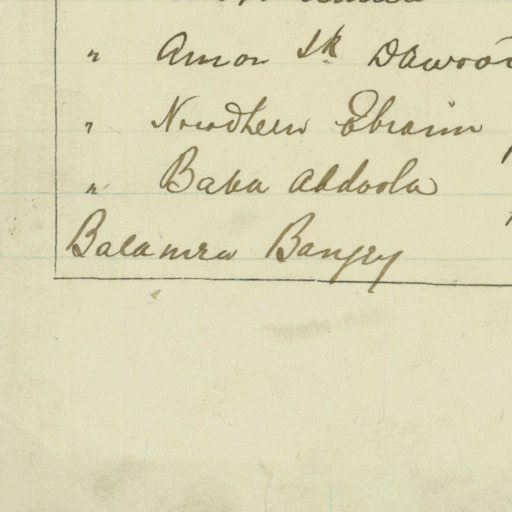 " Amon Sk Dawood
" Nowdheen Ebraim
" Baba Abdoola
Balamea Bangey